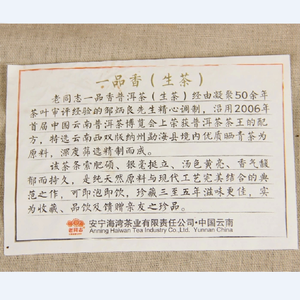 一品香（生茶）
老同志一品香普洱茶（生茶）经由凝聚50余年
茶叶审评经验的邹炳良先生精心调制，沿用2006年
首届中国云南普洱茶博览会上荣获普洱茶茶王的配
方，精选云南西双版纳州勐海县境内优质晒青茶为
原料，深度筛选精制而成。
该茶条索肥硕、银毫挺立，汤色黄亮、香气馥
郁而持久，是纯天然原料与现代工艺完美结合的典
范之作，可即泡即饮，珍藏三至五年滋味更佳，实
为收藏、品饮及馈赠亲友之珍品。
老同志
安宁海湾茶业有限责任公司·中国云南
Anning Haiwan Tea Industry Co.,Ltd. Yunnan China